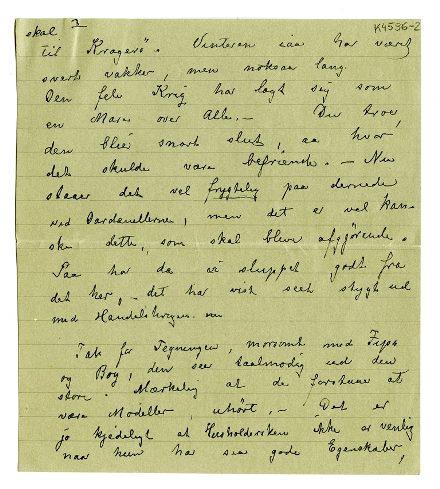 K4536-2
skal I
til Kragerø. Vinteren iaa har været
svært vakker, men noksaa lang.
Den fæle Krig har lagt sig som
en Mare over Alle. – Du troer,
den blir snart slut, aa hvor
det skulde være befriende. – Nu
staaer det vel frygtelig paa dernede
ved Dardanellerne, men det er vel kan-
ske dette, som skal blive afgjørende.
Saa har da vi sluppet godt fra
det her, – det har vist seet stygt ud
med Handelskrigen. nu
Tak for Tegningen, morsomt med
og Boy, den ser taalmodig ud den
store. Mærkelig at de forstaar at
være Modeller, uhørt. – Det er
jo kjedeligt at Husholdersken ikke er venlig
naar hun har saa gode Egenskaber,